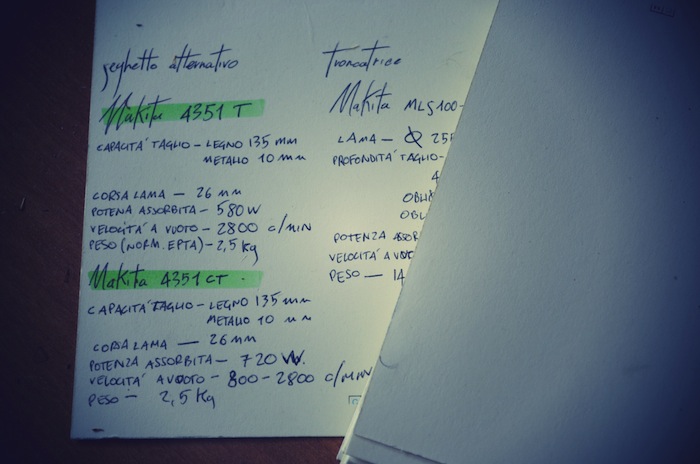 seghetto alternativo
Makita 4351 T
CAPACITÁ TAGLIO - LEGNO 135 mm
METALLO 10 mm
CORSA LAMA — 26 mm
POTENZA ASSORBITA - 580 W
VELOCITÁ A VUOTO - 2800 c/MIN
PESO (NORM. EPTA) - 2,5 Kg
Makita 4351 CT
CAPACITÁ TAGLIO - LEGNO 135 mm
METALLO 10 mm
CORSA LAMA — 26 mm
POTENZA ASSORBITA - 720 W.
VELOCITÁ A VUOTO - 800-2800 c/MIN
PESO — 2,5 Kg
troncatrice
Makita MLS100-
LAMA - Ø 25
PROFONDITÁ TAGLIO-
4
OBLI
OBL
POTENZA ASSOR
VELOCITÁ A VUOT
PESO — 14